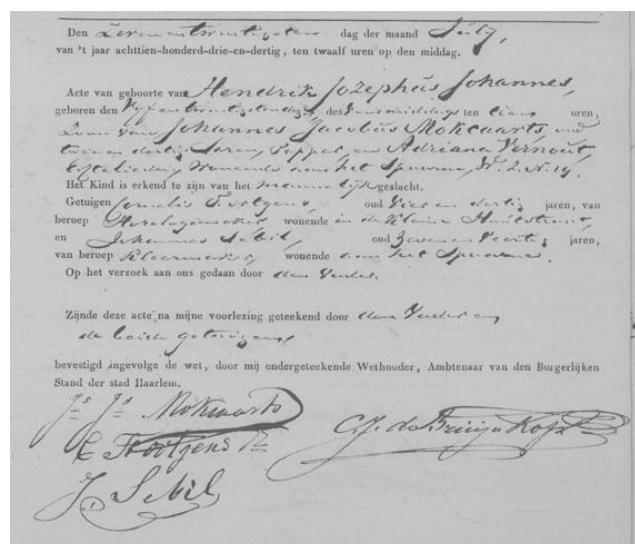 Den Zevenentwintigsten dag der maand July,
van 't jaar achttien-honderd-drie-en-dertig, ten twaalf uren op den middag.
Acte van geboorte van Hendrik Jozephus Johannes,
geboren den Vyfentwintigsten dezer des voormiddags ten tien uren,
Zoon van Johannes Jacobus Mokvaarts, oud
twee en dertig Jaren, en Adriana Vernout,
Echtelieden, Wonende aan het Spaarne, W. 2. N. 19.
Het Kind is erkend te zijn van het mannelijk geslacht.
Getuigen Cornelis Trootgens, oud Vier en dertig jaren, van
beroep Horologiemaker wonende in de Kleine Houtstraat,
en Johannes Sebil, oud Zeven en Veertig jaren,
van beroep Kleermaker, wonende aan het Spaarne.
Op het verzoek aan ons gedaan door den Vader.
Zijnde deze acte na mijne voorlezing geteekend door den Vader en
de beide getuigen,
bevestigd ingevolge de wet, door mij ondergeteekende Wethouder, Ambtenaar van den Burgerlijken
Stand der stad Haarlem.
Js Js Mokvaarts
C Trootgens
C.J. de Bruyn Kops
J. Sebil